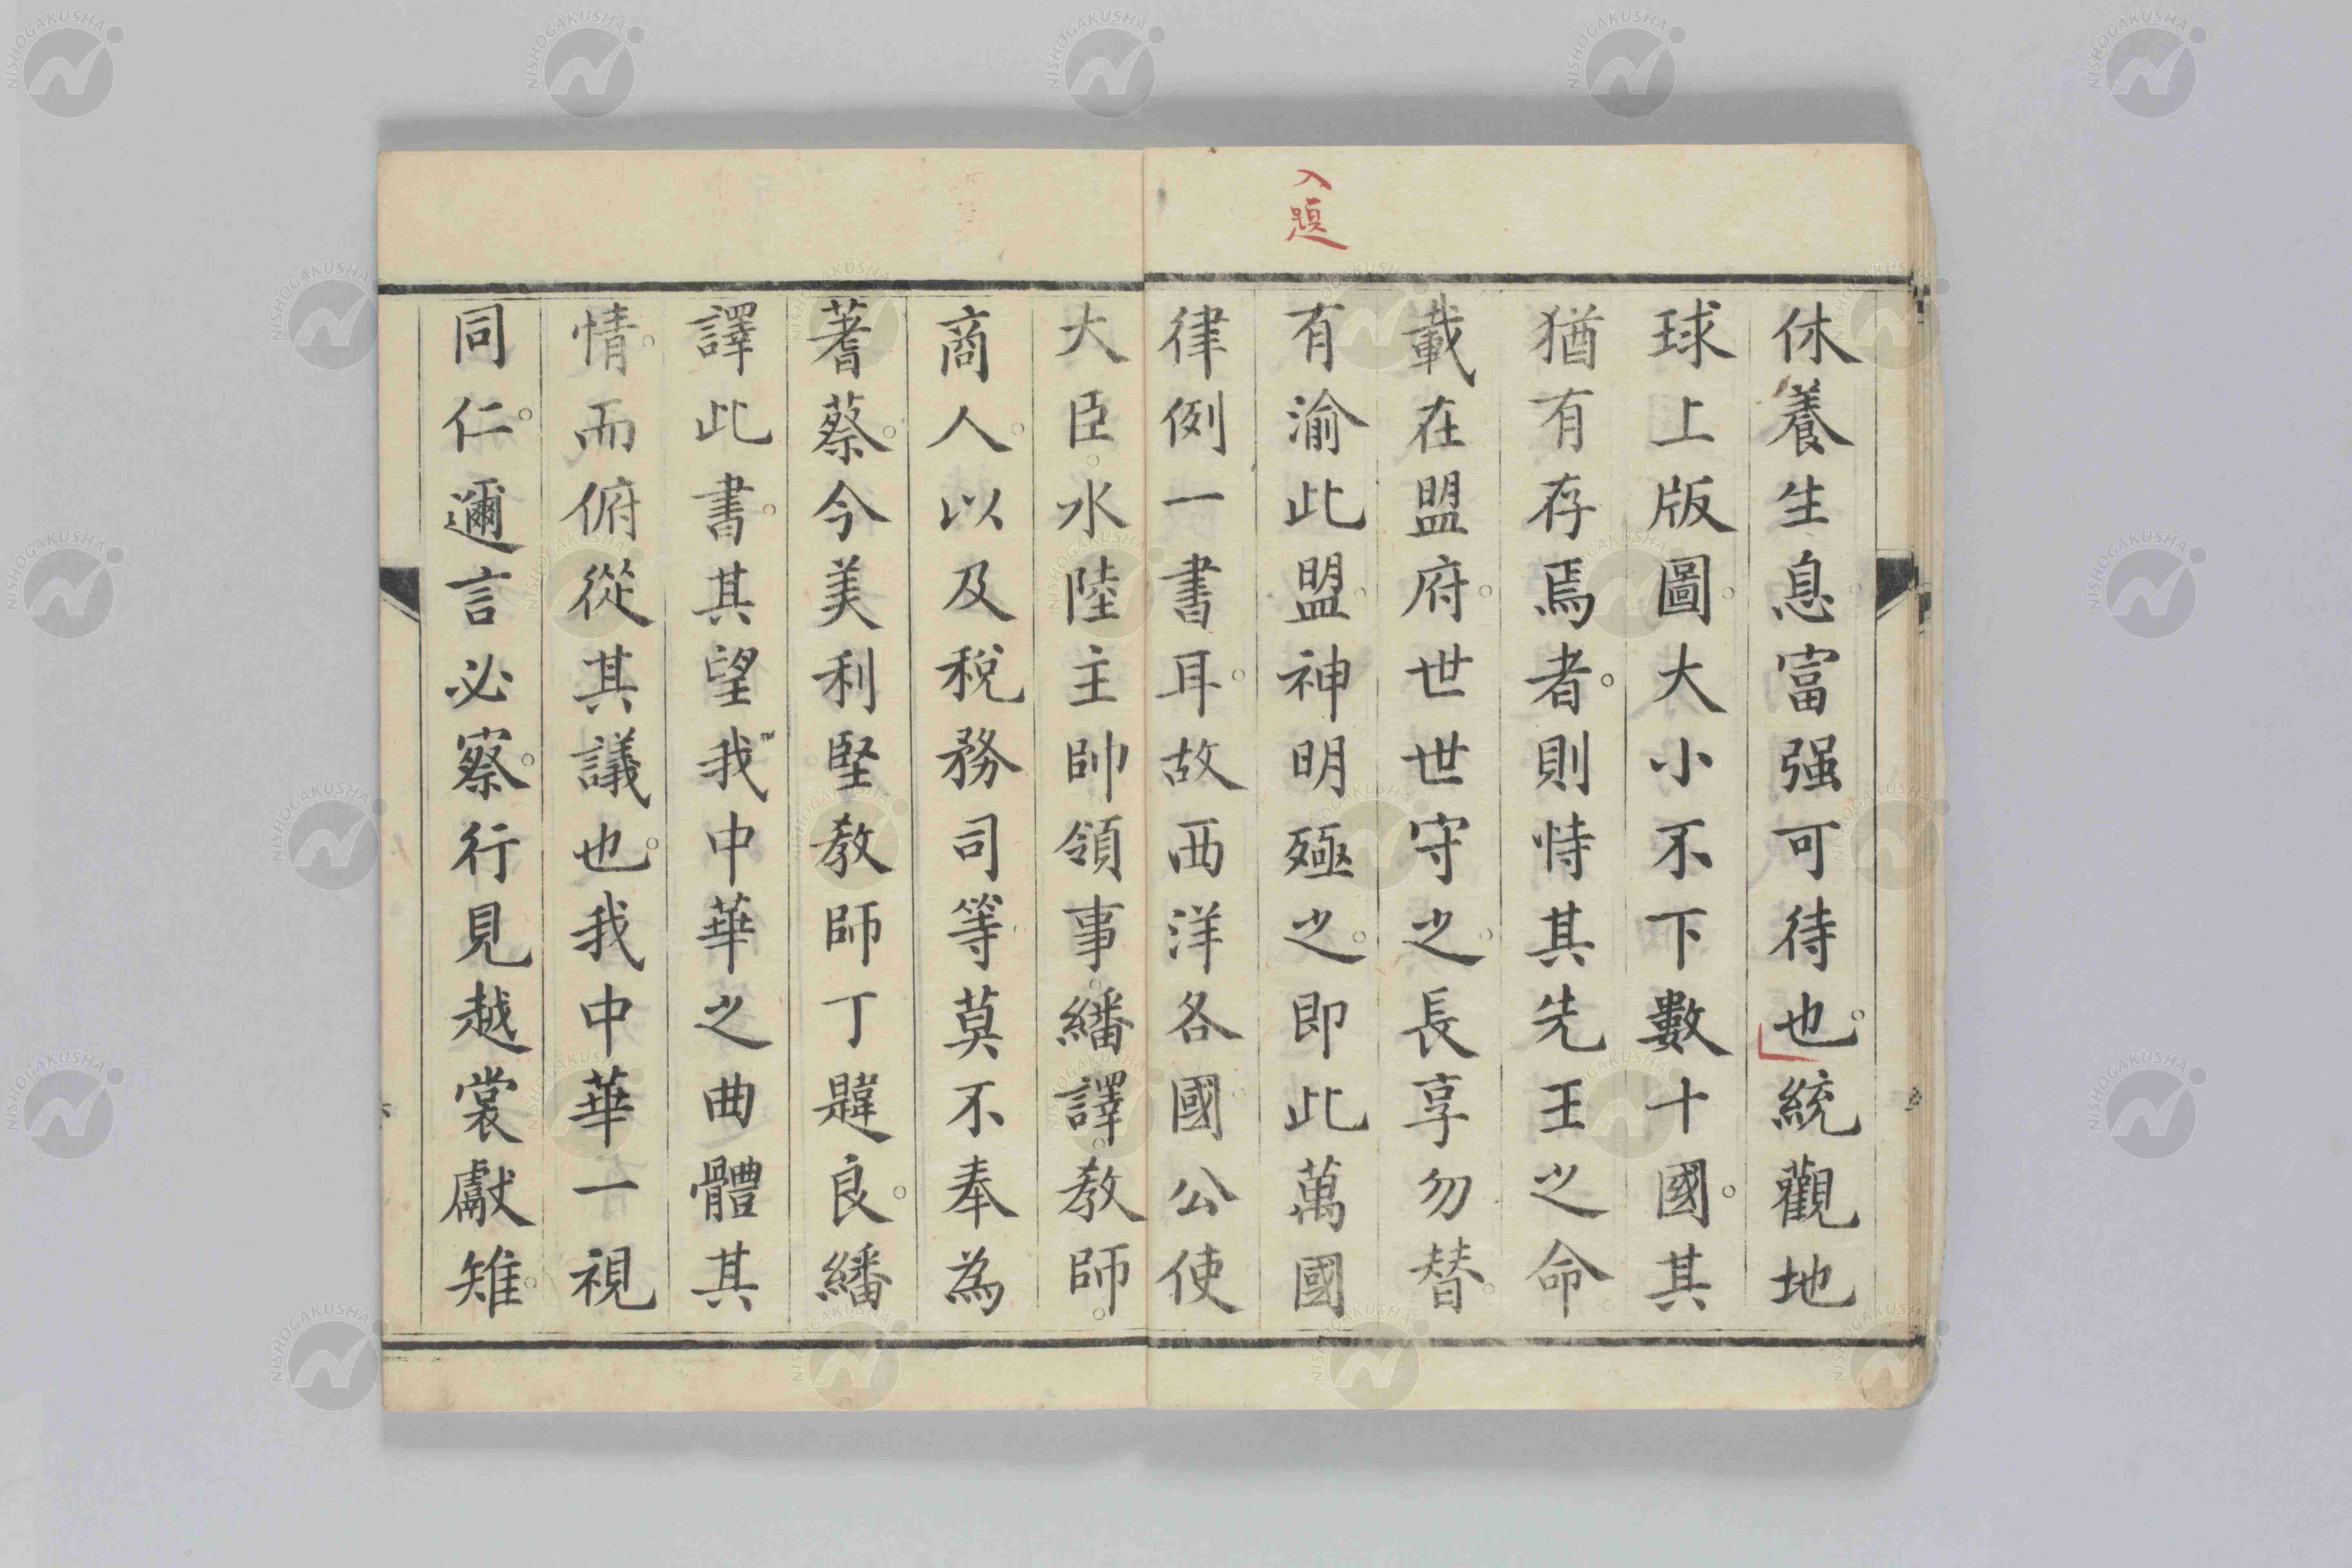 入題
休養生息富强可待也。統觀地
球上版圖。大小不下數十國。其
猶有存焉者。則恃其先王之命
載在盟府。世世守之。長享勿替。
有渝此盟。神明殛之。即此萬國
律例一書耳。故西洋各國公使
大臣。水陸主帥領事。繙譯。教師。
商人。以及稅務司等。莫不奉為
蓍蔡。今美利堅教師丁韙良。繙
譯此書。其望我中華之曲體其
情。而俯從其議也。我中華一視
同仁。邇言必察。行見越裳獻雉。
NISHOGAKUSHA